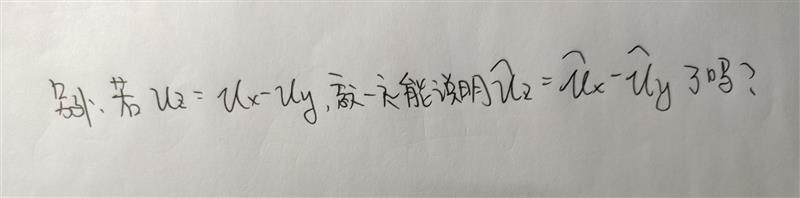 另外、若 u_z = u_x - u_y, 就一定能说明 \hat{u}_z = \hat{u}_x - \hat{u}_y 了吗?